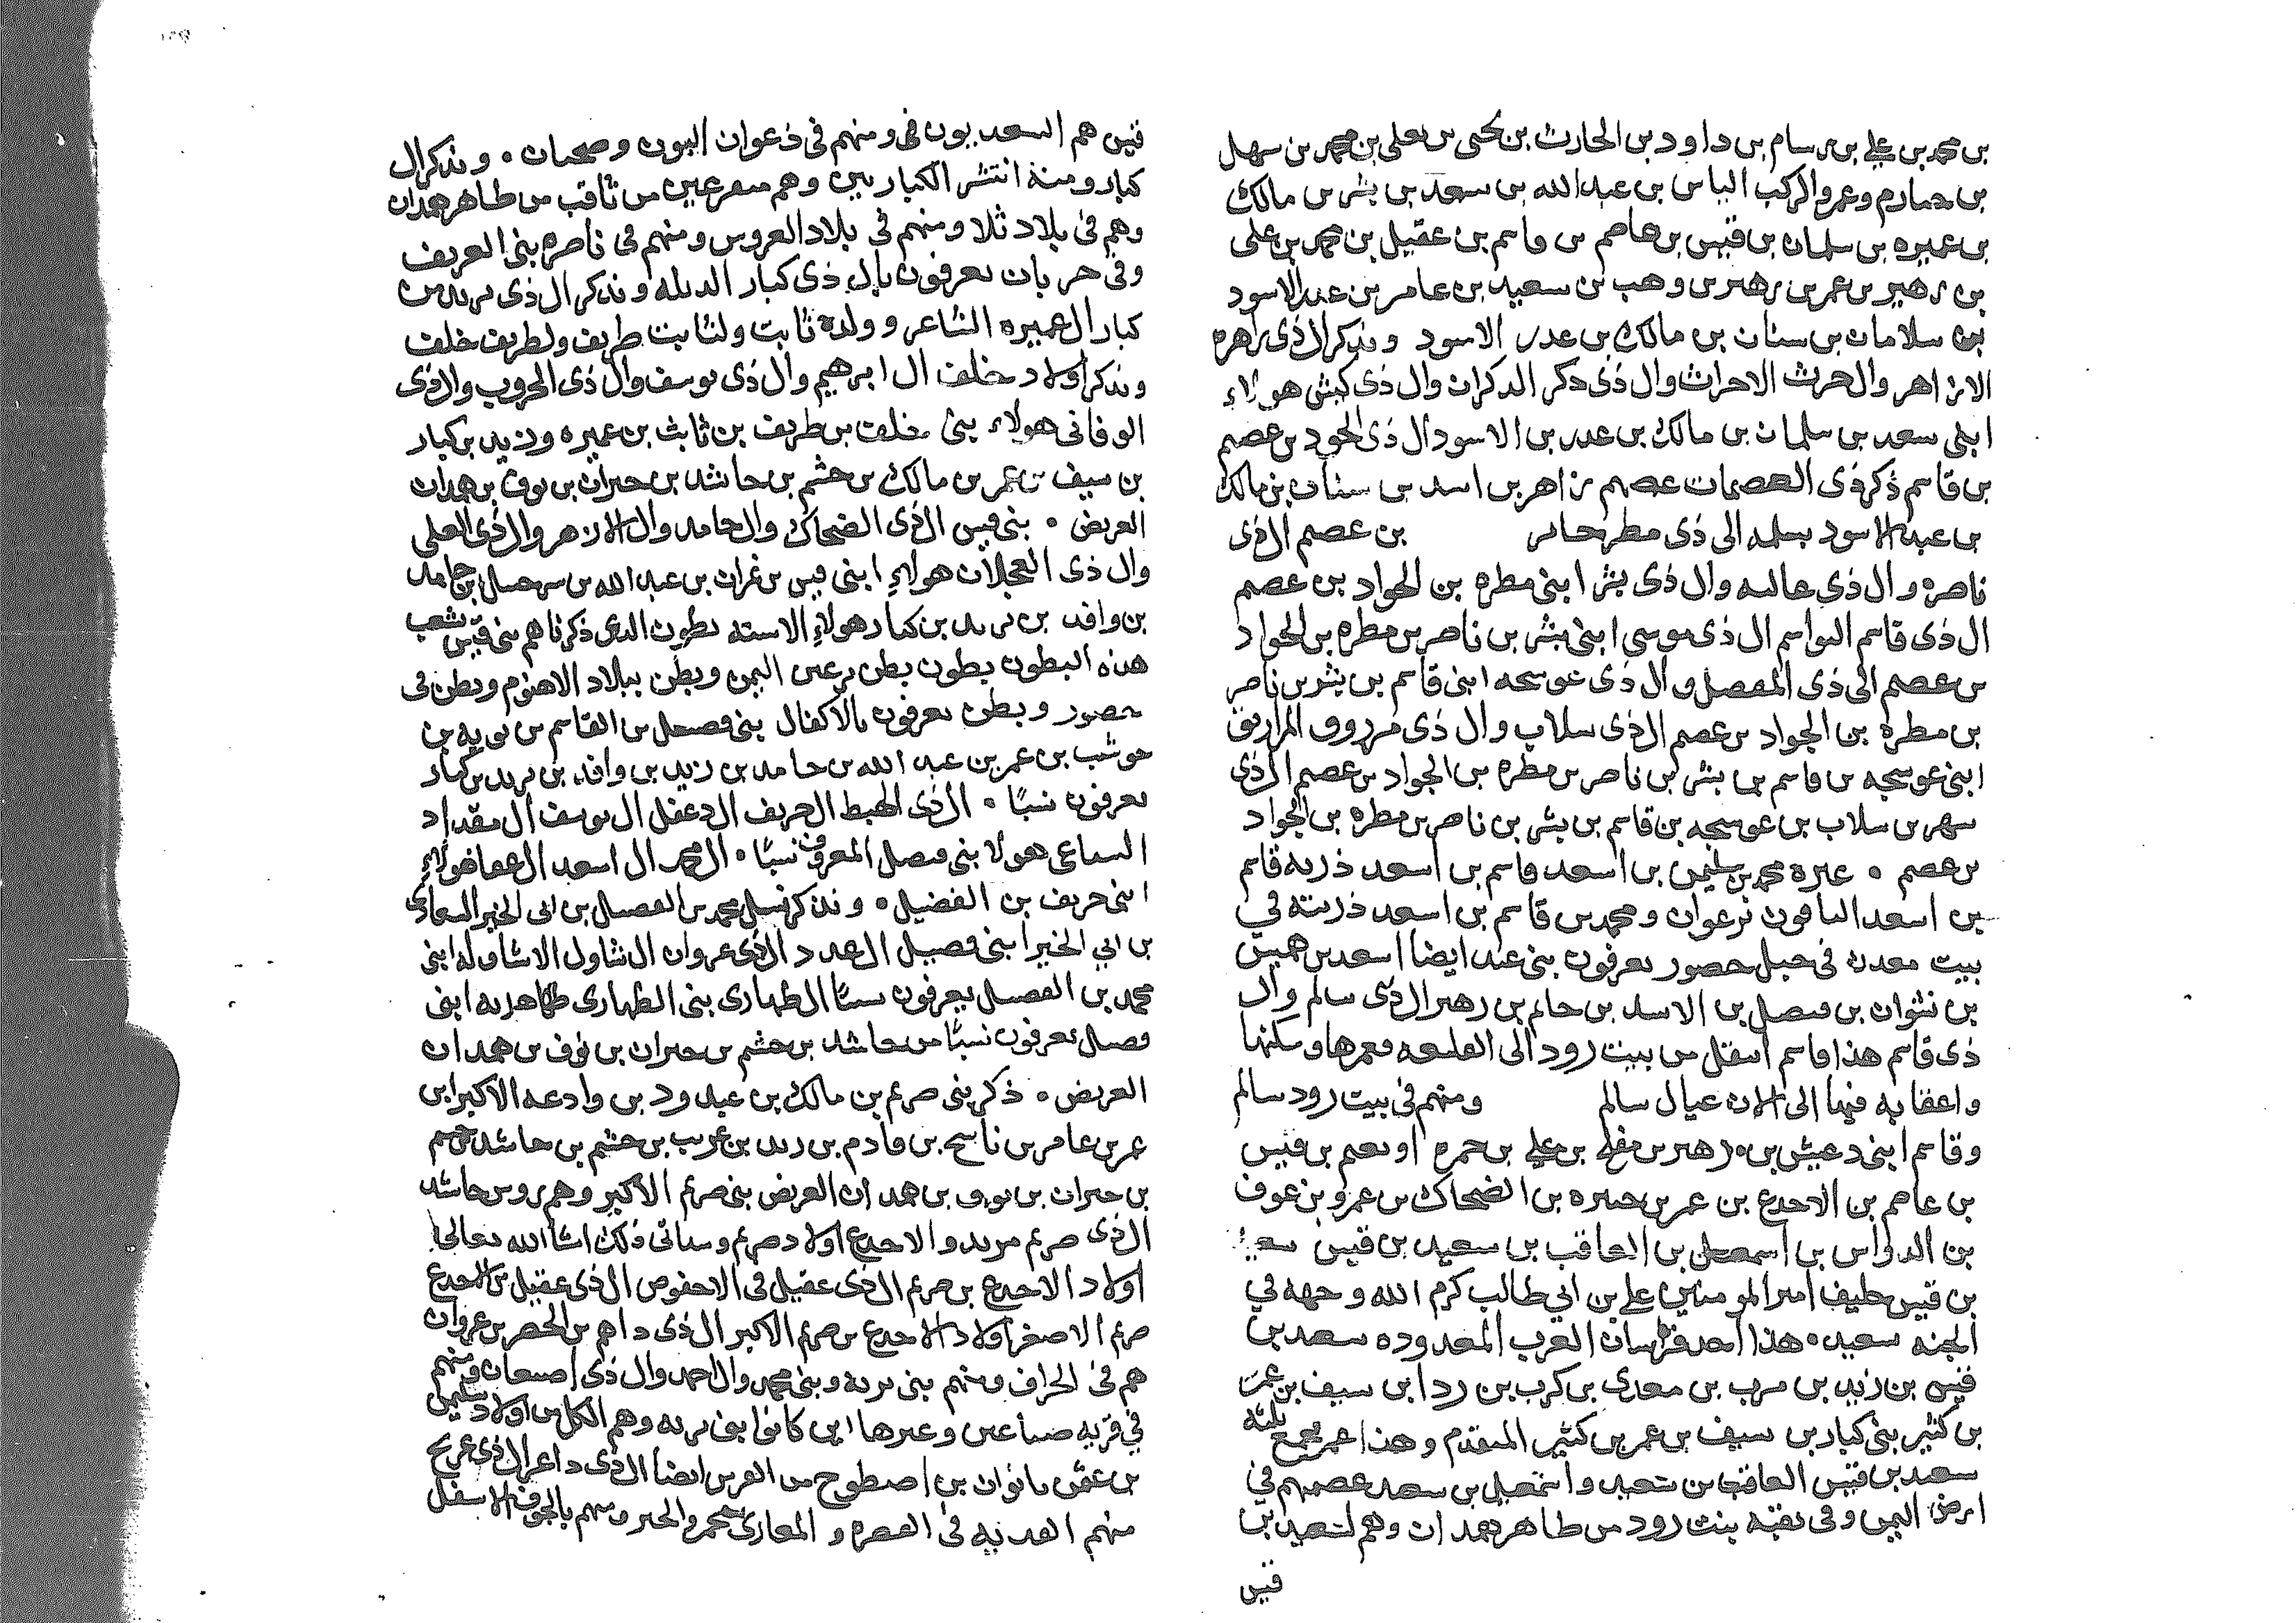 بن محمد بن علي بن سام بن داود بن الحارث بن يحيى بن يعلى بن محمد بن سهل
بن صارم وعمرو الركب الياس بن عبدالله بن سعد بن بشر بن مالك
بن عميره بن سلمان بن قيس بن عاصم بن قاسم بن عقيل بن محمد بن على
بن زهير بن عمر بن زهير بن وهب بن سعيد بن عامر بن عبدالاسود
بن سلامان بن سنان بن مالك بن عدر الاسود ونذكر ال ذى زاهره
الازاهر وال حرث الاحراث وال ذى ذكر الذكران وال ذى كبش هولاء
ابنى سعد بن سلمان بن مالك بن عدر بن الاسود ال ذى الجود بن عصم
بن قاسم ذكر ذى العصمات عصم زاهر بن اسد بن سنان بن مالك
بن عبد الاسود الى ذى مطر بن عصم ال ذى
ناصره وال ذى عالبه وال ذى بشر ابنى مطره بن الجواد بن عصم
ال ذى قاسم القواسم ال ذى موسى ابنى بشر بن ناصر بن مطره بن الجواد
بن عصم الى ذى المفصل وال ذى عوسجه ابنى قاسم بن بشر بن ناصر
بن مطره بن الجواد بن عصم ال ذى سلاب وال ذى مرزوق المرازيق
ابنى عوسجه بن قاسم بن بشر بن ناصر بن مطره بن الجواد بن عصم ال ذى
سهر بن سلاب بن عوسجه بن قاسم بن بشر بن ناصر بن مطره بن الجواد
بن عصم ۰ عنزه محمد بن سليمن بن اسعد قاسم بن اسعد ذريه قاسم
بن اسعد الباقون ومحمد بن قاسم بن اسعد ذريته في
بيت معدن فى جبل حضور يعرفون بنى عند ايضا اسعد بن
بن نشوان بن فضل بن الاسد بن حاتم بن زهير ال ذى سالم وال
ذى قاسم هذا قاسم انتقل من بيت رود الى القلعه وعمرها وسكنها
واعقابه فيها الى الان عيال سالم ومنهم فى بيت رود سالم
وقاسم ابنى دعيش بن زهير بن مفلح بن علي بن حمزه او نعيم بن قيس
بن عاصم بن الاجدع بن عمر بن بن الضحاك بن عمرو بن عوف
بن الدواس بن اسمعيل بن العاقب بن سعيد بن قيس سعيد
بن قيس حليف امير المومنين علي بن ابي طالب كرم الله وجهه في
الجنه سعيد ۰ هذا احد فرسان العرب المعدوده سعد بن
قيس بن زيد بن مرب بن معدى بن كرب بن رد ابن سيف بن عمر
بن كثير بنى كبار بن سيف بن عمر بن كثير المتقدم وهذا عمر يجمع بثلثه
سعد بن قيس العاقب بن سعيد واسمعيل بن سعد عصمهم في
ارض اليمن وفى بقيه بيت رود من ظاهر همدان وهم لسعيد بن
قيس
قيس هم السعديون فى ومنهم فى ذعوان البون وصحبان ۰ ونذكر ال
كبار ومنه انتشر الكباريين وهم متفرعين من ثاقب من ظاهر همدان
وهم فى بلاد ثلا ومنهم فى بلاد العروس ومنهم فى ناصره بنى العريف
وفى حربان يعرفون بال ذى كبار ونذكر ال ذى يريد بن
كبار ال عميره الشاعر وولده ثابت ولثابت طريف ولطريف خلف
ونذكر اولاد خلف ال ابرهيم وال ذى يوسف وال ذى الحروب وال ذى
الوفانى هولاء بنى خلف بن طريف بن ثابت بن عميره وزيد بن كبار
بن سيف بن عمر بن مالك بن جشم بن حاشد بن حبران بن نوف بن همدان
العريض ۰ بنى قيس ال ذى الضحاك وال حامد وال الازهر وال ذى العلى
وال ذى العجلان هولاء ابنى قيس بن غران بن عبدالله بن بن حامد
بن وافد بن يريد بن كبار هولاء الاسته بطون الذى ذكرناهم بنى قيس شعب
هذه البطون بطون بطن اليمن وبطن ببلاد الاهنوم وبطن فى
حضور وبطن يعرفون بالاكفال بنى بن القاسم بن بن
حوشب بن عمر بن عبد الله بن حامد بن زيد بن وافد بن يريد بن كبار
يعرفون نسبًا ۰ ال ذى الهبط ال حريف ال دغفل ال يوسف ال مقداد
هولا بنى فضل المعروف نسبًا ۰ ال محمد ال اسعد ال هولاء
ابنى حريف بن الفضيل ۰ ونذكر نسل محمد بن الفضل بن ابى الخير
بن ابي الخير ابنى فضيل العدد ال ذى عروان ال شاول ابنى
محمد بن الفضل يعرفون نسبًا ال ظهارى بنى الظهارى ظاهريه ابنى
فضال يعرفون نسبًا من حاشد بن جشم بن حبران بن نوف بن همدان
العريض ۰ ذكر بنى صريم بن مالك بن عبد ود بن وادعه الاكبر ابن
عمر بن عامر بن ناشح بن قادم بن زيد بن عريب بن جشم بن حاشد بن جشم
بن حبران بن نوف بن همدان العريض بنى صريم الاكبر وهم روس حاشد
ال ذى صريم مريد والاجدع اولاد صريم وسياتى ذلك انشا الله تعالى
اولاد الاجدع بن صريم ال ذى عقيل فى الاحفوص ال ذى عقيل بن الاجدع
صريم الاصغر اولاد الاجدع بن صريم الاكبر ال ذى داهم بن بن عروان
هم فى الحراف ومنهم بنى بريه وبنى محمد وال احمد وال ذى ومنهم
في قريه وغيرها اين كانوا بنى بريه وهم الكل من اولاد سليمن
بن بن اصطوح من ايضا ال ذى داعر ال ذى عريج
منهم فى و ومنهم بالجوف الاسفل